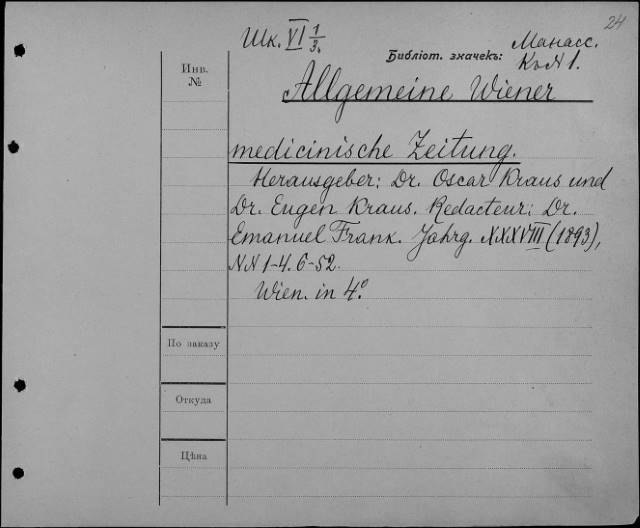 24
Шк. VI 1/3.
Библіот. значекъ: Манасс.
К. № 1.
Инв.
№
Allgemeine Wiener
medicinische Zeitung.
Herausgeber: Dr. Oscar Kraus und
Dr. Eugen Kraus. Redacteur: Dr.
Emanuel Frank. Jahrg. XXXVIII (1893),
NN 1-4. 6-52.
Wien. in 4.º
По заказу
Откуда
Цѣна